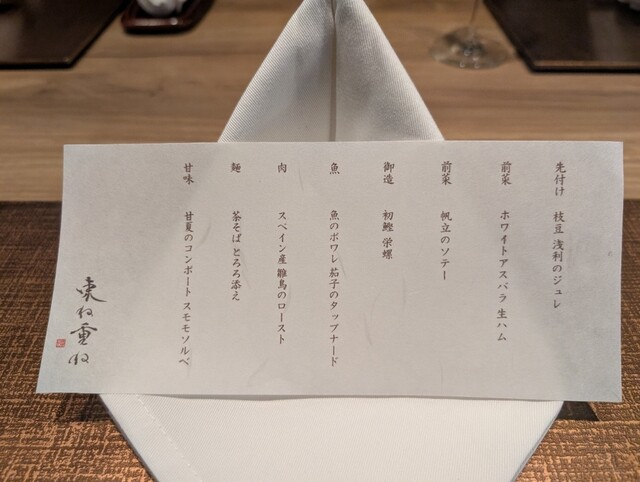 先付け 枝豆 浅利のジュレ
前菜 ホワイトアスパラ 生ハム
前菜 帆立のソテー
御造 初鰹 栄螺
魚 魚のポワレ 茄子のタップナード
肉 スペイン産 雛鳥のロースト
麺 茶そば とろろ添え
甘味 甘夏のコンポート スモモソルベ